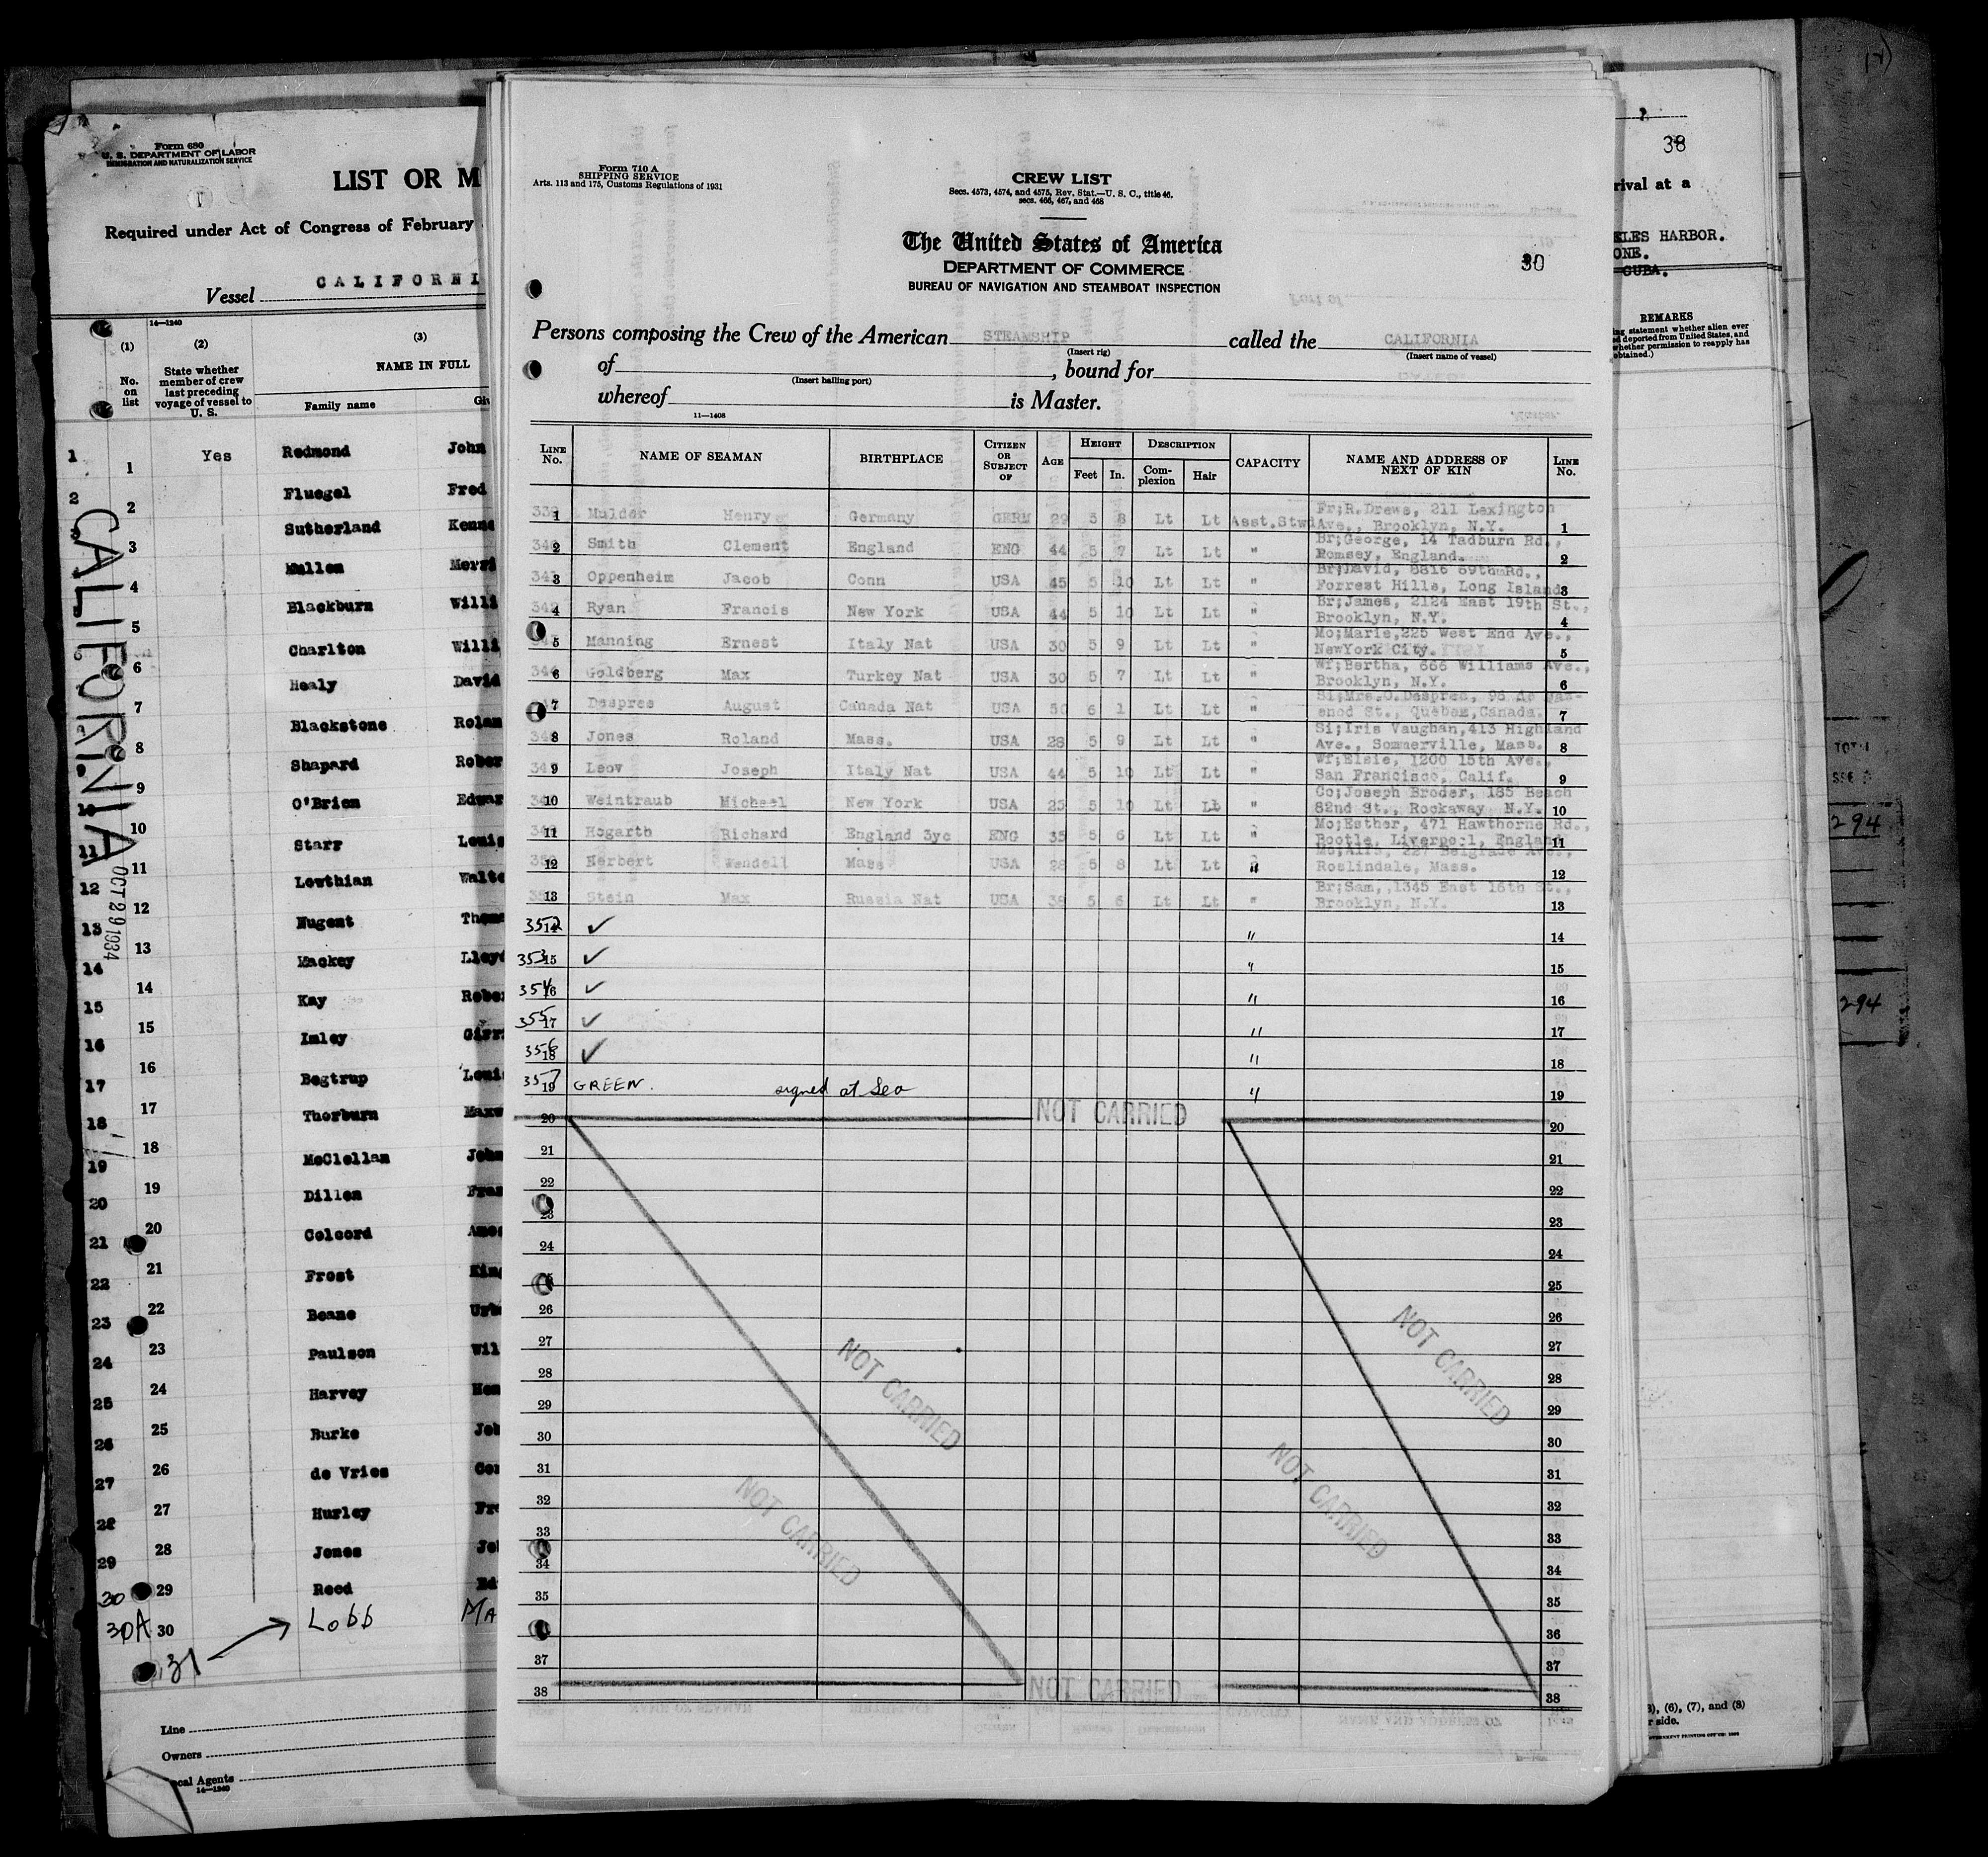 Form 680
U. S. DEPARTMENT OF LABOR
IMMIGRATION AND NATURALIZATION SERVICE
LIST OR M
Required under Act of Congress of February
Vessel CALIFORNI
14—1240
(1) (2) (3)
No. on list
State whether member of crew last preceding voyage of vessel to U. S.
NAME IN FULL
Family name
CALIFORNIA
OCT 29 1934
1 1 Yes Redmond John
2 2 Fluegel Fred
3 3 Sutherland Kenne
4 4 Mullen Merri
5 5 Blackburn Willi
6 6 Charlton Willi
7 Healy David
8 Blackstone Rolan
9 Shapard Rober
10 10 O'Brien Edwar
11 11 Starr Louis
12 12 Lowthian Walte
13 13 Nugent Thom
14 14 Mackey Lloyd
15 15 Kay Rober
16 16 Imley
17 17 Begtrup Loui
18 18 Thorburn Maxw
19 19 McClellan John
20 20 Dillon Fran
21 21 Colcord Amos
22 22 Frost King
23 23 Beane
24 24 Paulson Wil
25 25 Harvey Hen
26 26 Burke Joh
27 27 de Vries
28 28 Hurley Fre
29 29 Jones Jo
30 Reed Ed
30A 30 Lobb MA
31
Line
Owners
Local Agents
14—1240
Form 710 A
SHIPPING SERVICE
Arts. 113 and 175, Customs Regulations of 1931
CREW LIST
Secs. 4573, 4574, and 4575, Rev. Stat.—U. S. C., title 46,
secs. 466, 467, and 468
The United States of America
DEPARTMENT OF COMMERCE
BUREAU OF NAVIGATION AND STEAMBOAT INSPECTION
30
Persons composing the Crew of the American STEAMSHIP called the CALIFORNIA
(Insert rig) (Insert name of vessel)
of , bound for
(Insert hailing port)
whereof is Master.
11—1408
LINE No. NAME OF SEAMAN BIRTHPLACE CITIZEN OR SUBJECT OF AGE HEIGHT Feet In. DESCRIPTION Complexion Hair CAPACITY NAME AND ADDRESS OF NEXT OF KIN LINE No.
1 Mulder Henry Germany GERM 29 5 8 Lt Lt Asst.Stwd Fr;R.Drews, 211 Lexington Ave., Brooklyn, N.Y. 1
2 Smith Clement England ENG 44 5 7 Lt Lt " Br;George, 14 Tadburn Rd., Romsey, England. 2
3 Oppenheim Jacob Conn USA 45 5 10 Lt Lt " Br;David, 8816 69th Rd., Forrest Hills, Long Island 3
4 Ryan Francis New York USA 44 5 10 Lt Lt " Br;James, 2124 East 19th St., Brooklyn, N.Y. 4
5 Manning Ernest Italy Nat USA 30 5 9 Lt Lt " Mo;Marie,225 West End Ave., NewYork City. 5
6 Goldberg Max Turkey Nat USA 30 5 7 Lt Lt " Wf;Bertha, 666 Williams Ave., Brooklyn, N.Y. 6
7 Despres August Canada Nat USA 6 1 Lt Lt " Si;Mrs.O.Despres, 96 enod St., Quebec,Canada. 7
8 Jones Roland Mass. USA 28 5 9 Lt Lt " Si;Iris Vaughan,413 Highland Ave., Sommerville, Mass. 8
9 Leov Joseph Italy Nat USA 44 5 10 Lt Lt " Wf;Elsie, 1200 15th Ave., San Francisco, Calif. 9
10 Weintraub Michael New York USA 25 5 10 Lt Lt " Co;Joseph Broder, 185 Beach 82nd St., Rockaway N.Y. 10
11 Hogarth Richard England 3yc ENG 35 5 6 Lt Lt " Mo;Esther, 471 Hawthorne Rd., Bootle, Liverpool, England 11
12 Herbert Wendell Mass USA 28 5 8 Lt Lt " Roslindale, Mass. 12
13 Stein Max Russia Nat USA 38 5 6 Lt Lt " Br;Sam,,1345 East 16th St., Brooklyn, N.Y. 13
352 14 ✓ " 14
353 15 ✓ " 15
354 16 ✓ " 16
355 17 ✓ " 17
356 18 ✓ " 18
357 19 GREEN. signed at Sea " 19
20 NOT CARRIED 20
21 21
22 22
23 23
24 24
25
26 26
27 27
28 28
29 29
30 30
31 31
32 32
33 33
34 34
35 35
36
37 37
38 38
NOT CARRIED
NOT CARRIED
NOT CARRIED
NOT CARRIED
NOT CARRIED
38
rival at a
ELES HARBOR.
ONE.
CUBA.
REMARKS
ing statement whether alien ever
ed deported from United States, and
whether permission to reapply has
obtained.)
294
294
), (6), (7), and (8)
r side.